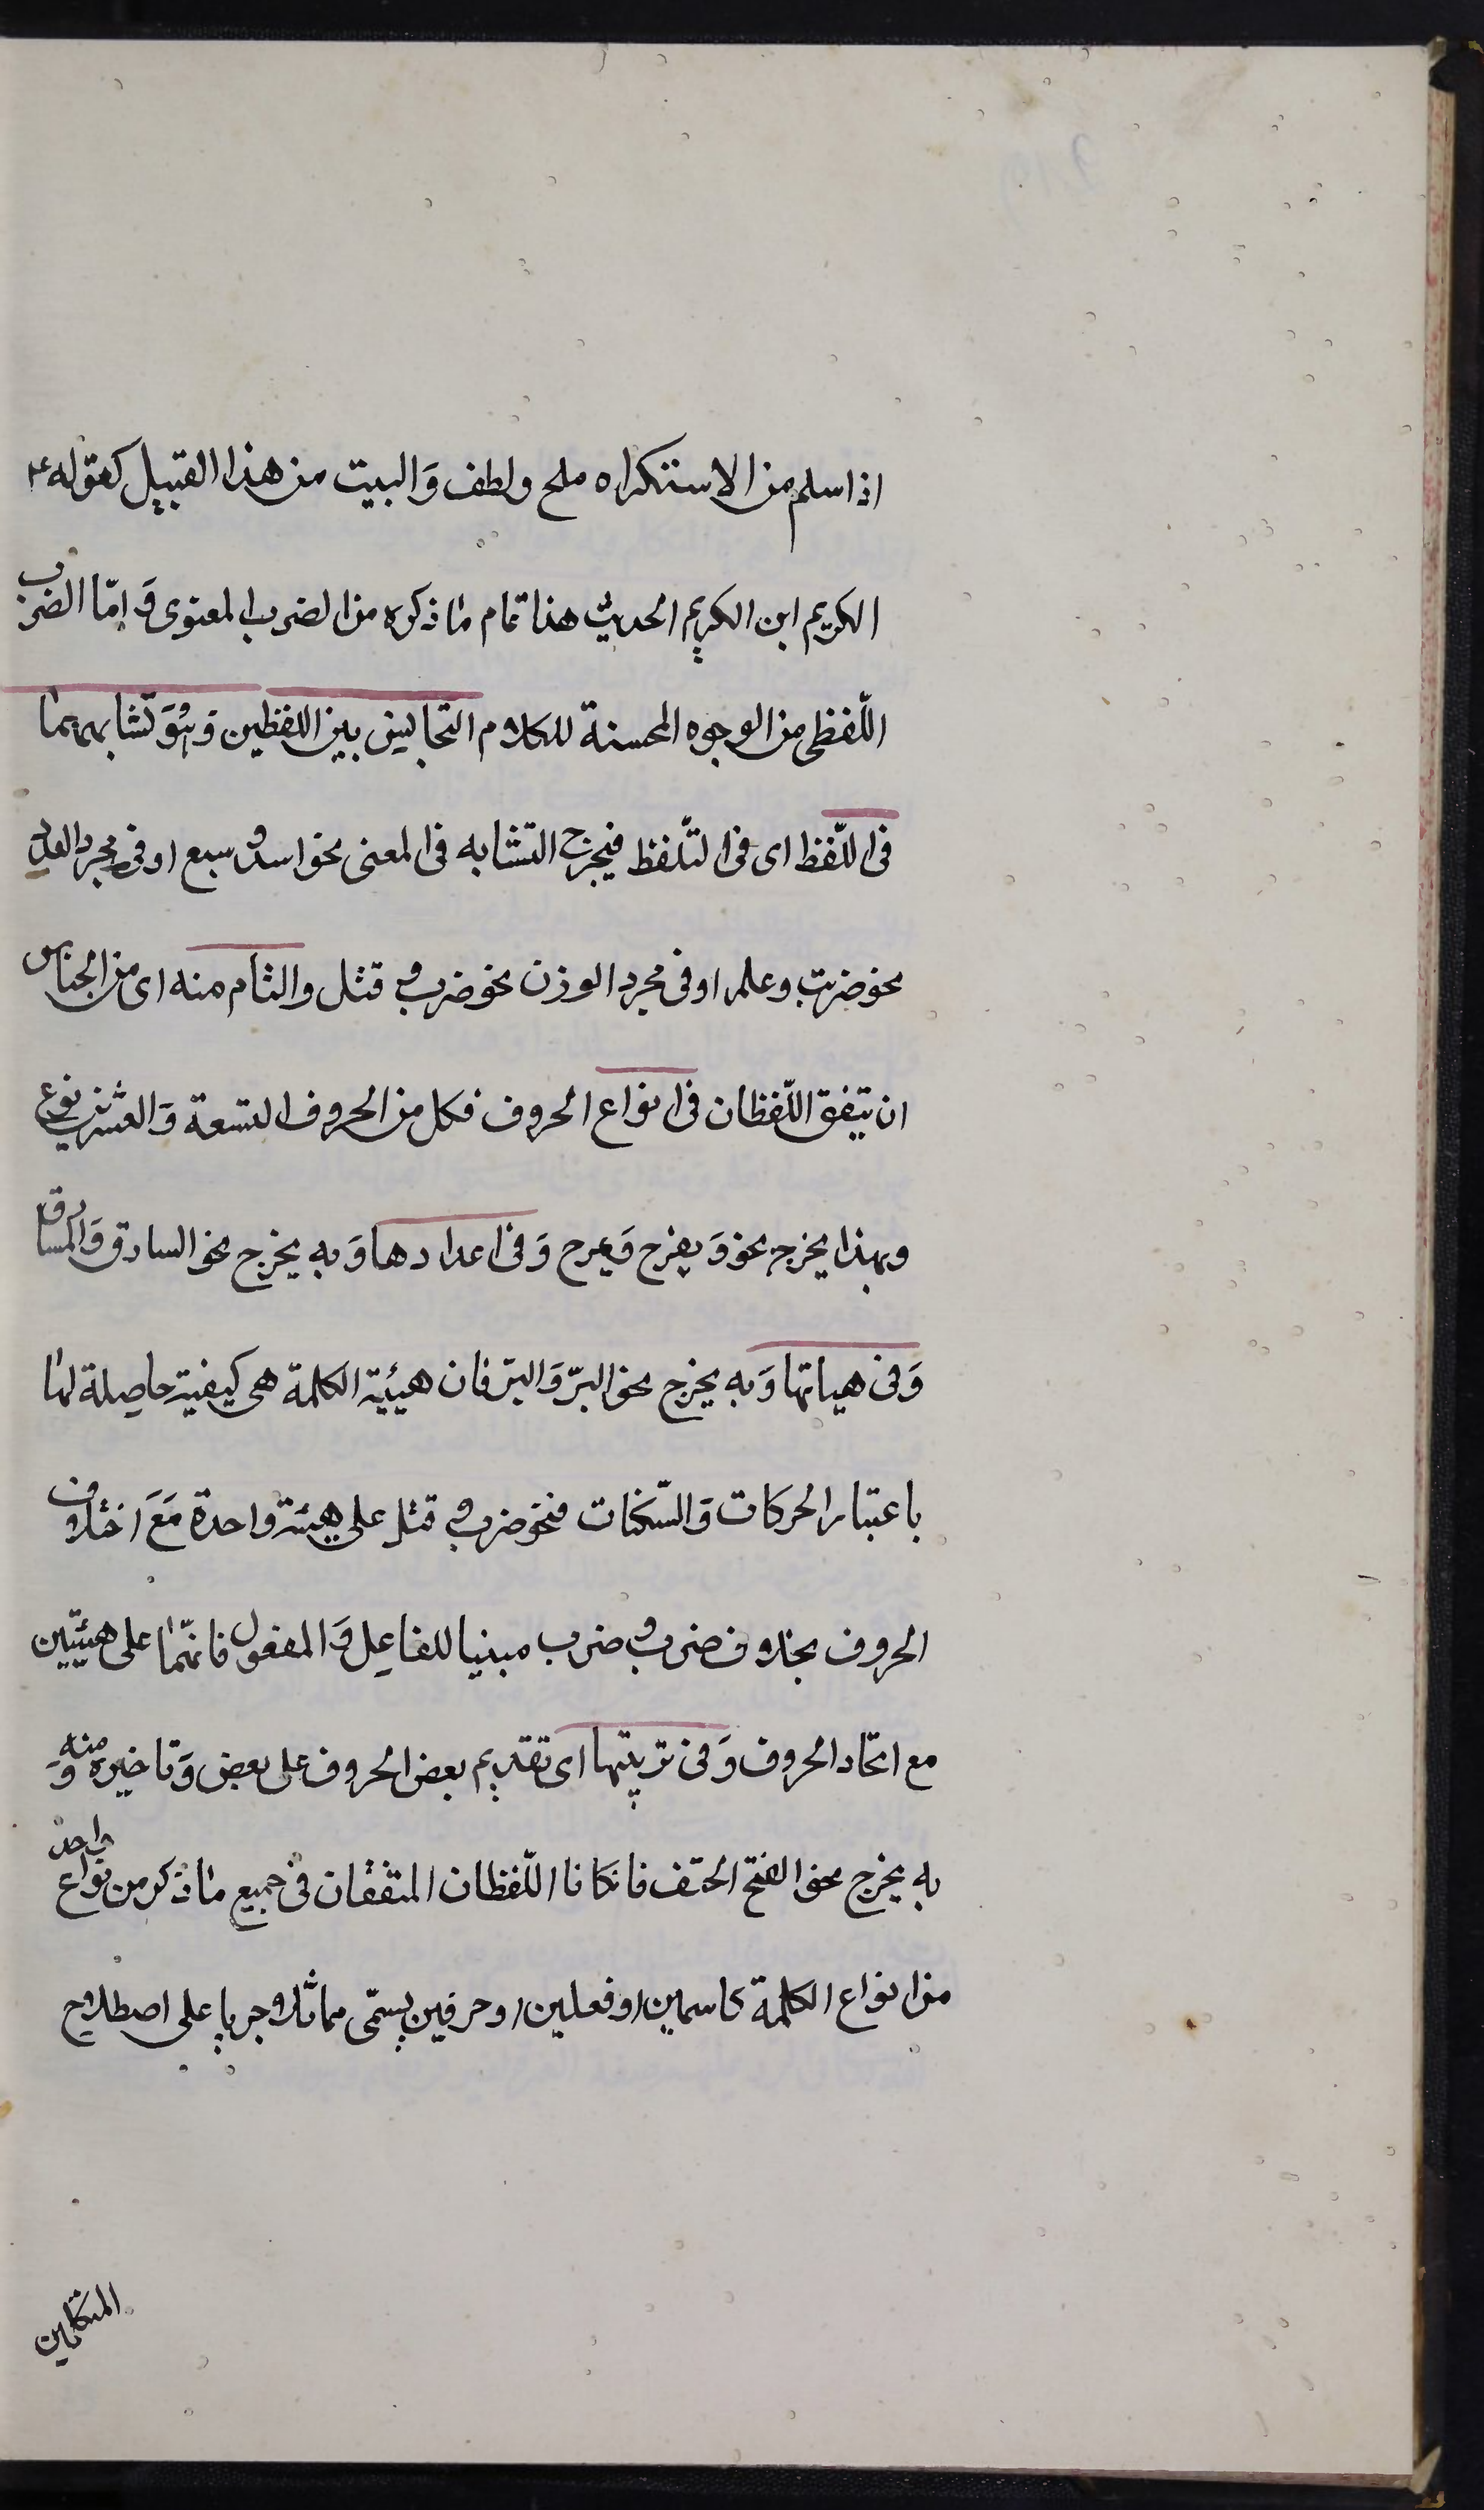 اذا سلم من الاستكراه ملح ولطف وَالبيت من هذا القبيل كقوله ع
الكريم ابن الكريم الحديث هذا تمام ما ذكره من الضرب المعنوى وَ امّا الضرب
اللّفظى من الوجوه المحسنة للكلام التجانيس بين اللفظين وَ هُوَ تشابههما
فى اللّفظ اى فى التّلفظ فيخرج التشابه فى المعنى نحو اسد و سبع او فى مجرد العدد
نحو ضرب وعلم او فى مجرد الوزن نحو ضرب و قتل والتام منه اى من الجناس
ان يتفق اللّفظان فى انواع الحروف فكل من الحروف التسعة وَالعشرين نوع
وبهذا يخرج نحو وَ يفرح وَيمرح وَ فى اعدادها وَ به يخرج نحو الساق وَالمساق
وَ فى هياتها وَ به يخرج نحو البرّ وَالبرّ فان هيئية الكلمة هى كيفية حاصيلة لها
باعتبار الحركات وَالسّكنات فنحو ضرب و قتل على هيئة واحدة مَعَ اختلاف
الحروف بخلاف ضرب و ضرب مبنيا للفاعِل وَ المفعول فانّهما على هيئتين
مع اتّحاد الحروف وَ فى ترتيبها اى تقديم بعض الحروف على بعض وَ تاخيره منه وَ
به يخرج نحو الفتح الحتف فانكانا اللّفظان المتفقان فى جميع ما ذكر من نواع واحد
من انواع الكلمة كاسمين او فعلين او حرفين يسمّى مماثلا جريا على اصطلاح
المتكلمين